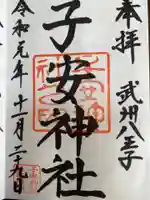 奉拝
武州八王子
子安神社
令和元年十一月二十九日